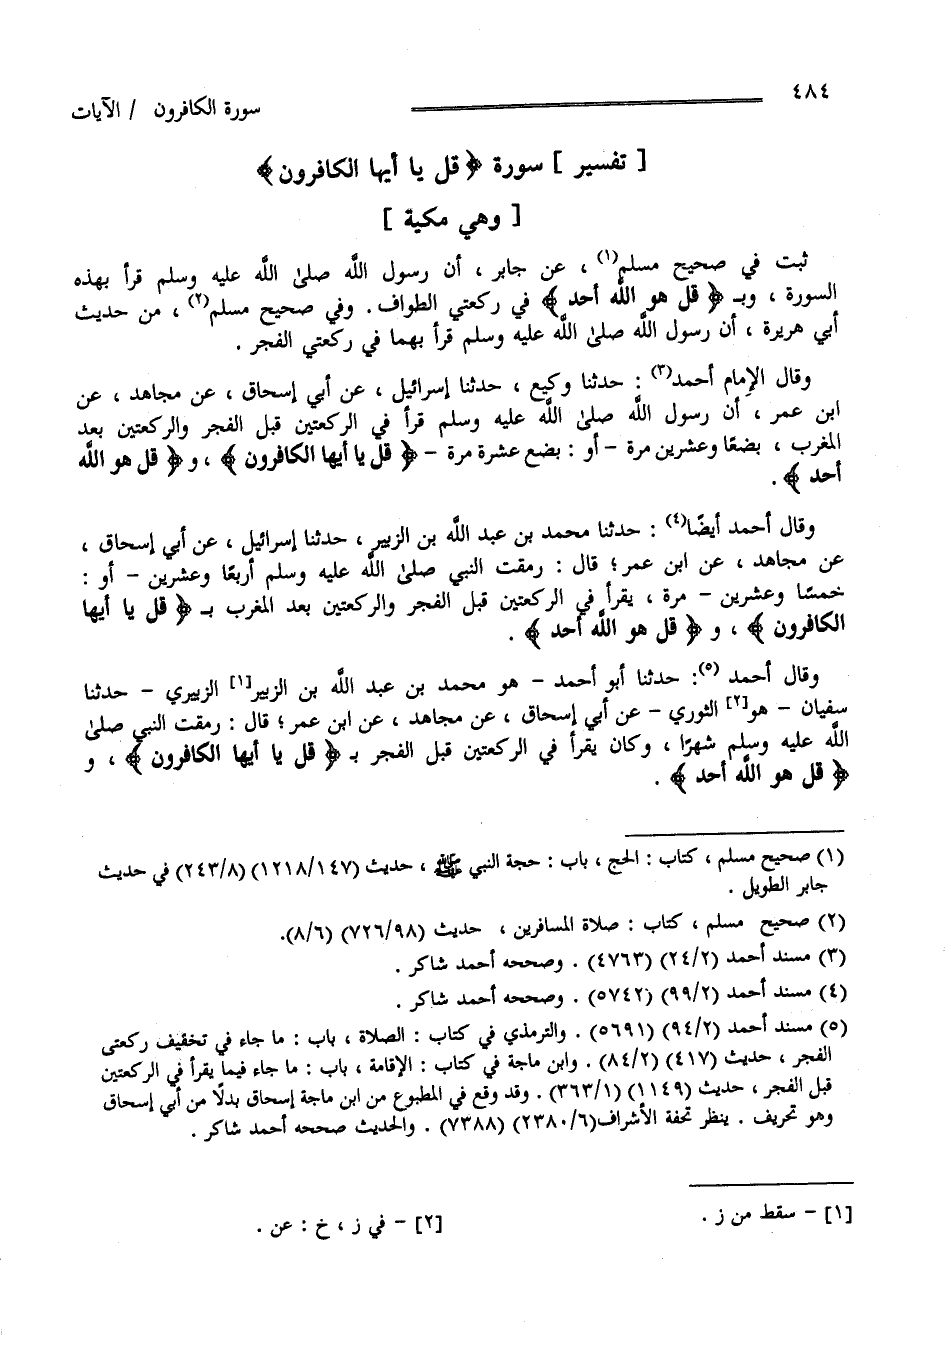 ٤٨٤
سورة الكافرون / الآيات
[ تفسير ] سورة ﴿ قل يا أيها الكافرون ﴾
[ وهي مكية ]
ثبت في صحيح مسلم(١) ، عن جابر ، أن رسول الله صلىٰ الله عليه وسلم قرأ بهذه
السورة ، وبـ ﴿ قل هو الله أحد ﴾ في ركعتي الطواف . وفي صحيح مسلم(٢) ، من حديث
أبي هريرة ، أن رسول الله صلىٰ الله عليه وسلم قرأ بهما في ركعتي الفجر .
وقال الإمام أحمد(٣) : حدثنا وكيع ، حدثنا إسرائيل ، عن أبي إسحاق ، عن مجاهد ، عن
ابن عمر ، أن رسول الله صلىٰ الله عليه وسلم قرأ في الركعتين قبل الفجر والركعتين بعد
المغرب ، بضعًا وعشرين مرة – أو : بضع عشرة مرة – ﴿ قل يا أيها الكافرون ﴾ ، و ﴿ قل هو الله
أحد ﴾ .
وقال أحمد أيضًا(٤) : حدثنا محمد بن عبد الله بن الزبير ، حدثنا إسرائيل ، عن أبي إسحاق ،
عن مجاهد ، عن ابن عمر ؛ قال : رمقت النبي صلىٰ الله عليه وسلم أربعًا وعشرين – أو :
خمسًا وعشرين – مرة ، يقرأ في الركعتين قبل الفجر والركعتين بعد المغرب بـ ﴿ قل يا أيها
الكافرون ﴾ ، و ﴿ قل هو الله أحد ﴾ .
وقال أحمد (٥): حدثنا أبو أحمد – هو محمد بن عبد الله بن الزبير[١] الزبيري – حدثنا
سفيان – هو[٢] الثوري – عن أبي إسحاق ، عن مجاهد ، عن ابن عمر ؛ قال : رمقت النبي صلىٰ
الله عليه وسلم شهرًا ، وكان يقرأ في الركعتين قبل الفجر بـ ﴿ قل يا أيها الكافرون ﴾ ، و
﴿ قل هو الله أحد ﴾ .
(١) صحيح مسلم ، كتاب : الحج ، باب : حجة النبي ﷺ ، حديث (١٢١٨/١٤٧) (٢٤٣/٨) في حديث
جابر الطويل .
(٢) صحيح مسلم ، كتاب : صلاة المسافرين ، حديث (٧٢٦/٩٨) (٨/٦).
(٣) مسند أحمد (٢٤/٢) (٤٧٦٣) . وصححه أحمد شاكر .
(٤) مسند أحمد (٩٩/٢) (٥٧٤٢) . وصححه أحمد شاكر .
(٥) مسند أحمد (٩٤/٢) (٥٦٩١) . والترمذي في كتاب : الصلاة ، باب : ما جاء في تخفيف ركعتى
الفجر ، حديث (٤١٧) (٨٤/٢) . وابن ماجة في كتاب : الإقامة ، باب : ما جاء فيما يقرأ في الركعتين
قبل الفجر ، حديث (١١٤٩) (٣٦٣/١) . وقد وقع في المطبوع من ابن ماجة إسحاق بدلًا من أبي إسحاق
وهو تحريف . ينظر تحفة الأشراف(٢٣٨٠/٦) (٧٣٨٨) . والحديث صححه أحمد شاكر .
[١] – سقط من ز .
[٢] – في ز ، خ : عن .